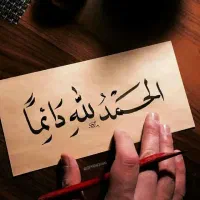 الحَمْدُ لِلّٰهِ دَائِماً